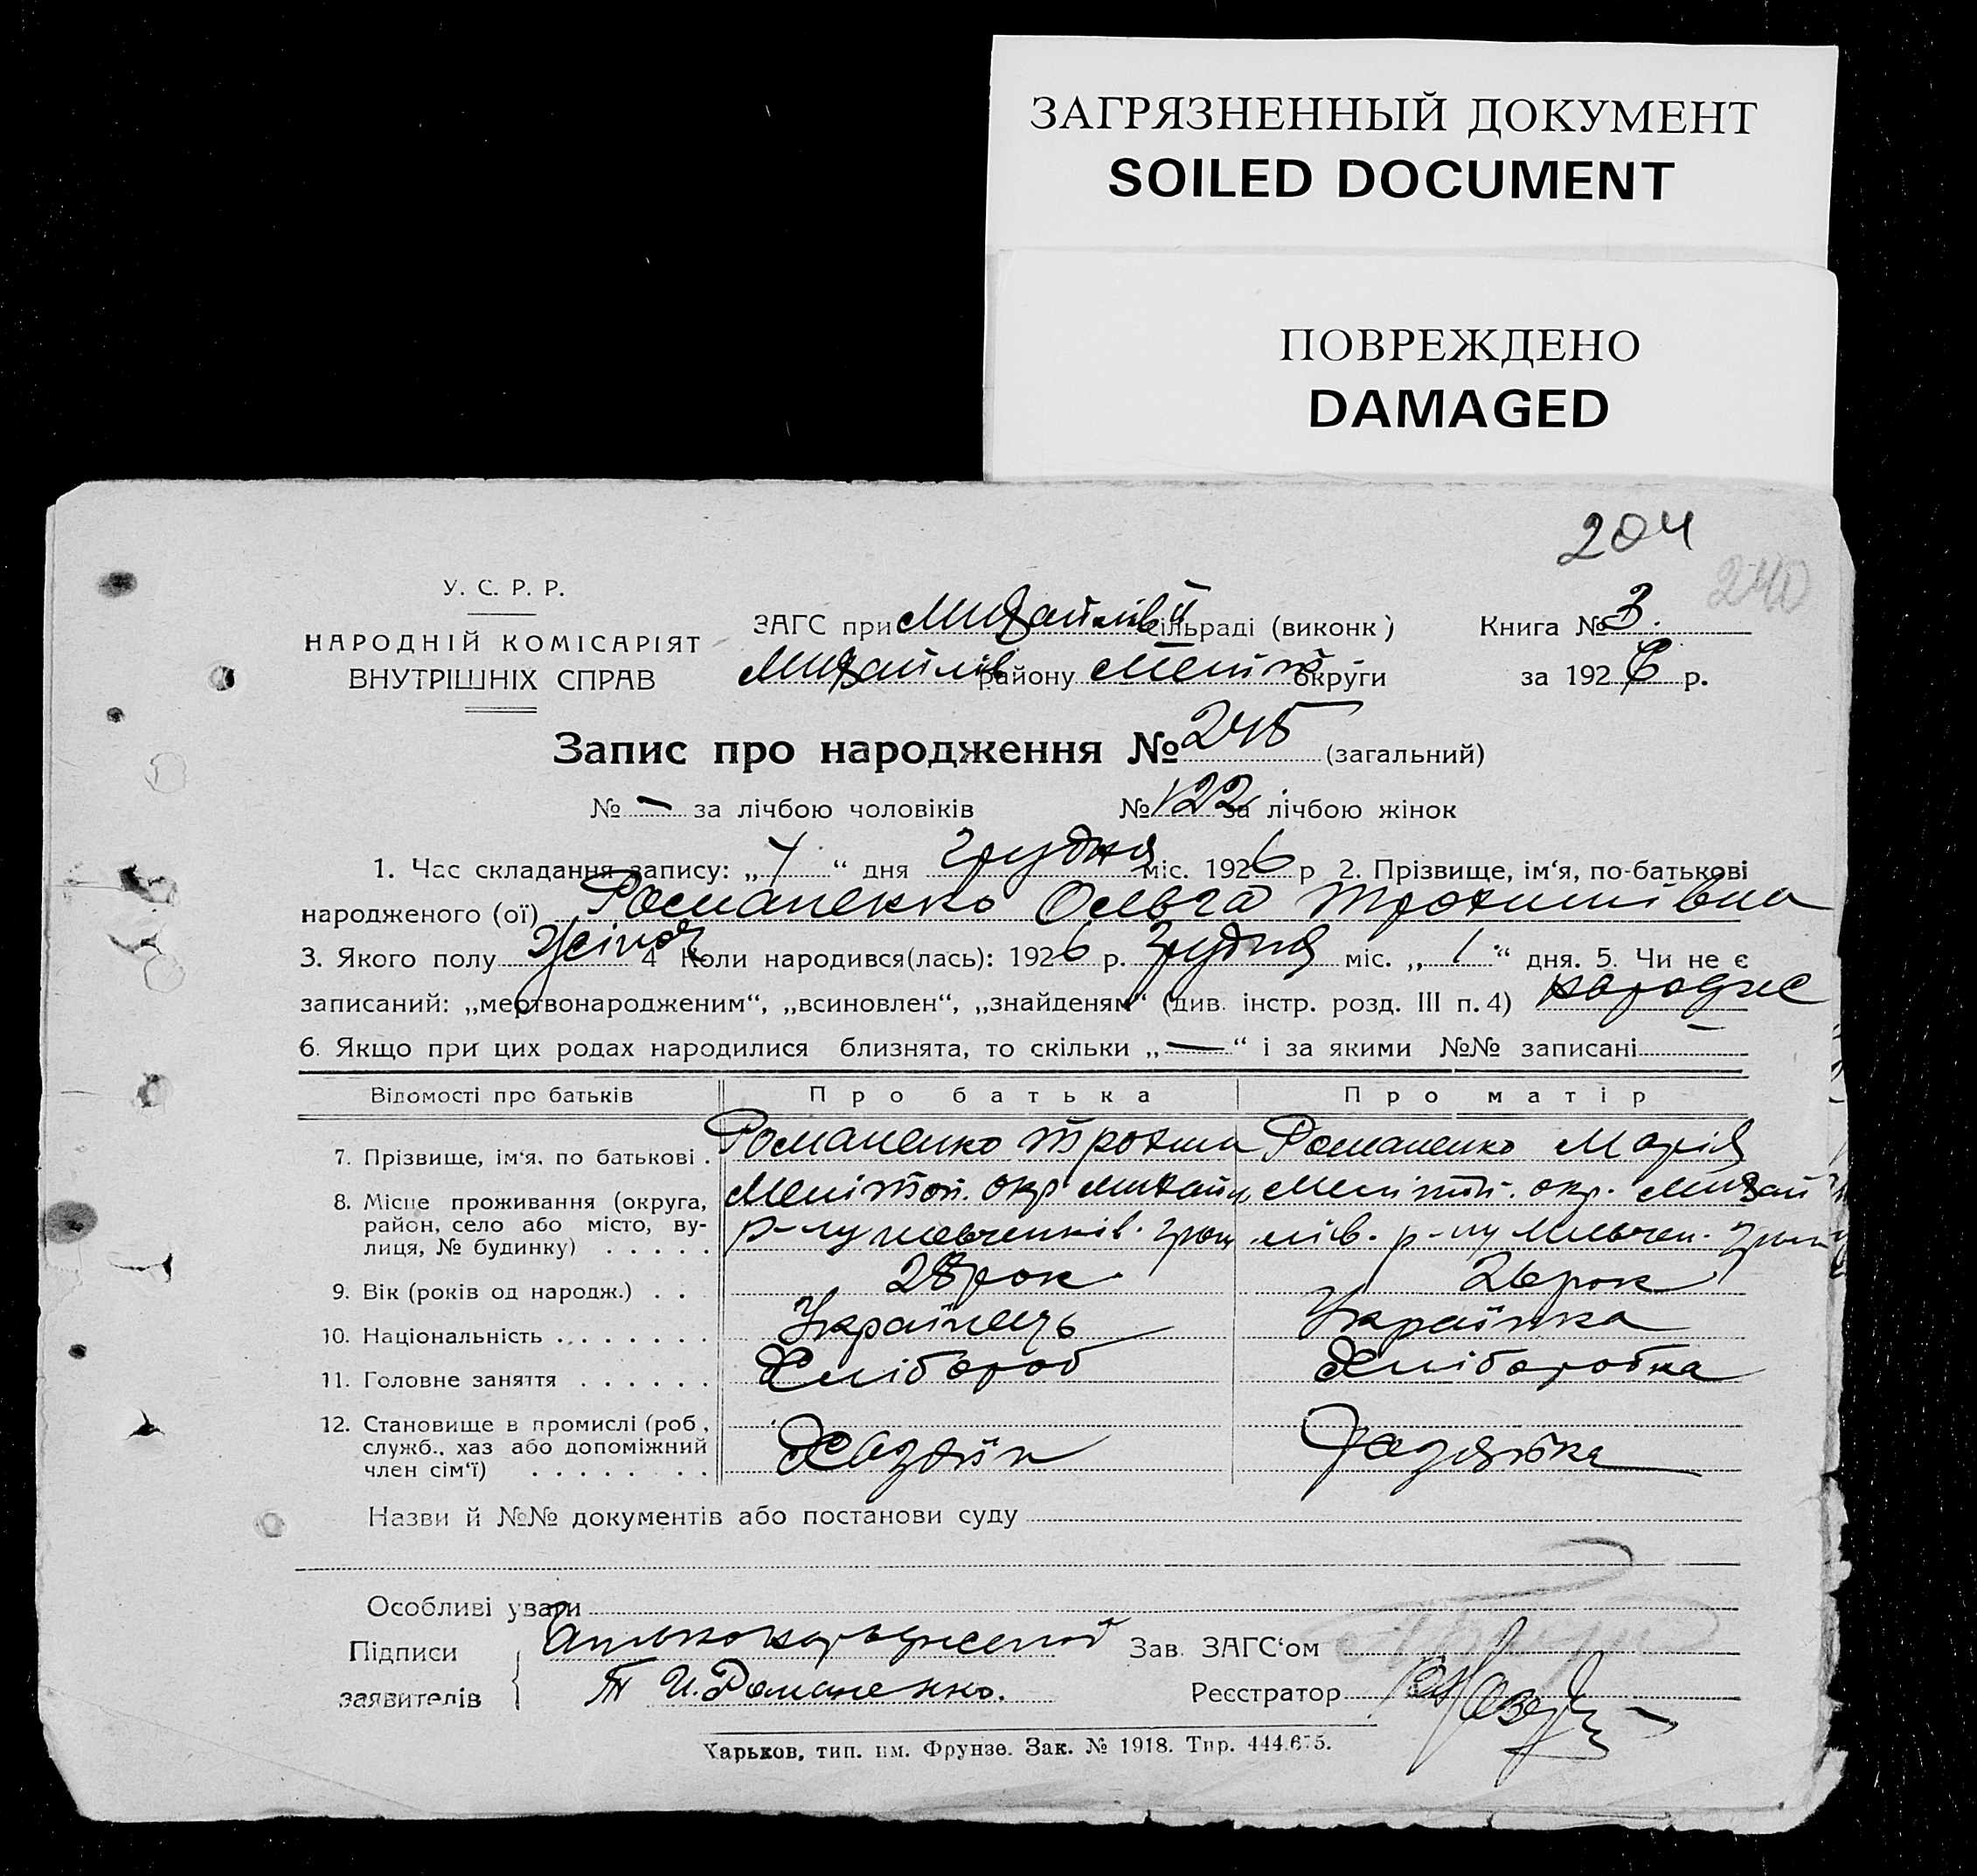 ЗАГРЯЗНЕННЫЙ ДОКУМЕНТ
SOILED DOCUMENT
ПОВРЕЖДЕНО
DAMAGED
204
240
У. С. Р. Р.
НАРОДНІЙ КОМІСАРІЯТ
ВНУТРІШНІХ СПРАВ
ЗАГС при Михайлівській сільраді (виконк) Книга № 3.
Михайлів району Меліт округи за 1926 р.
Запис про народження № 245 (загальний)
№ — за лічбою чоловіків № 122 за лічбою жінок
1. Час складання запису: „7“ дня грудня міс. 1926 р 2. Прізвище, ім‘я, по-батькові
народженого (ої) Романенко Ольга Трохимівна
3. Якого полу жіноч 4 Коли народився(лась): 1926 р. грудня міс. „1“ дня. 5. Чи не є
записаний: „мертвонародженим“, „всиновлен“, „знайденям“ (див. інстр. розд. III п. 4) народже
6. Якщо при цих родах народилися близнята, то скільки „—“ і за якими №№ записані —
Відомості про батьків Про батька Про матір
7. Прізвище, ім‘я, по батькові . Романенко Трохим Романенко Марія
8. Місце проживання (округа, район, село або місто, вулиця, № будинку) . . . . . Мелітоп. окр Михайл. Мелітоп. окр. Михай
р-ну гром лів. р-ну
9. Вік (років од народж.) . . 28 рок 26 рок
10. Національність . . . . . . . Українець Українка
11. Головне заняття . . . . . . Хлібороб Хліборобка
12. Становище в промислі (роб,
служб., хаз або допоміжний
член сім‘ї) . . . . . . . Хазяїн Хазяйка
Назви й №№ документів або постанови суду
Особливі уваги
Підписи Зав. ЗАГС‘ом
заявителів Т И. Романенко. Реєстратор
Харьков, тип. им. Фрунзе. Зак. № 1918. Тир. 444.675.